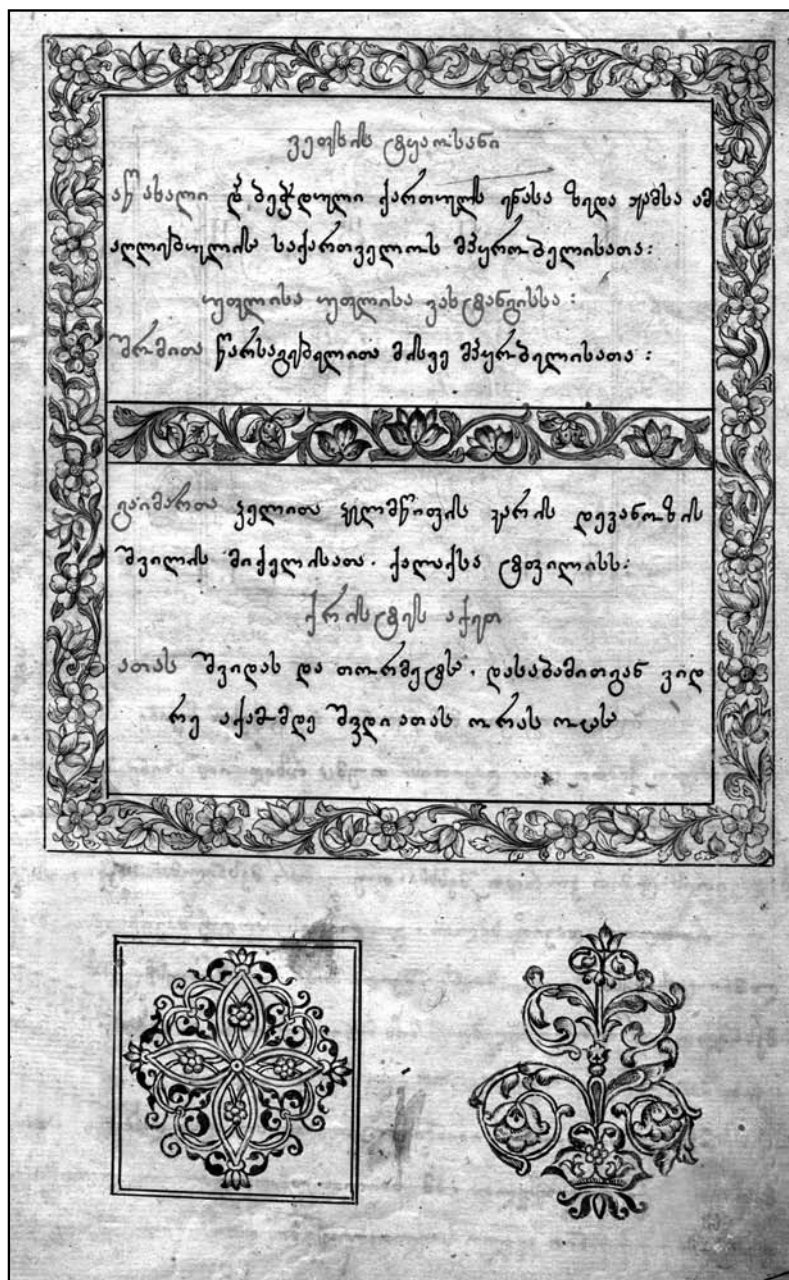 ვეფხის ტყაოსანი
აწ ახალი დაბეჭდული ქართულს ენასა ზედა ჟამსა ამ
აღლებულის საქართველოს მპყრობელისათა:
უფლისა უფლისა ვახტანგისსა:
შრომითა წარსაგებელითა მისვე მპყრობელისათა:
გაიმართა ჴელითა ჴელმწიფის კარის დეკანოზის
შვილის მიქელისათა. ქალაქსა ტფილისს:
ქრისტეს აქეთ
ათას შვიდას და თორმეტსა. დასაბამითგან ვიდ
რე აქამომდე შვდი ათას ორას ოცსა